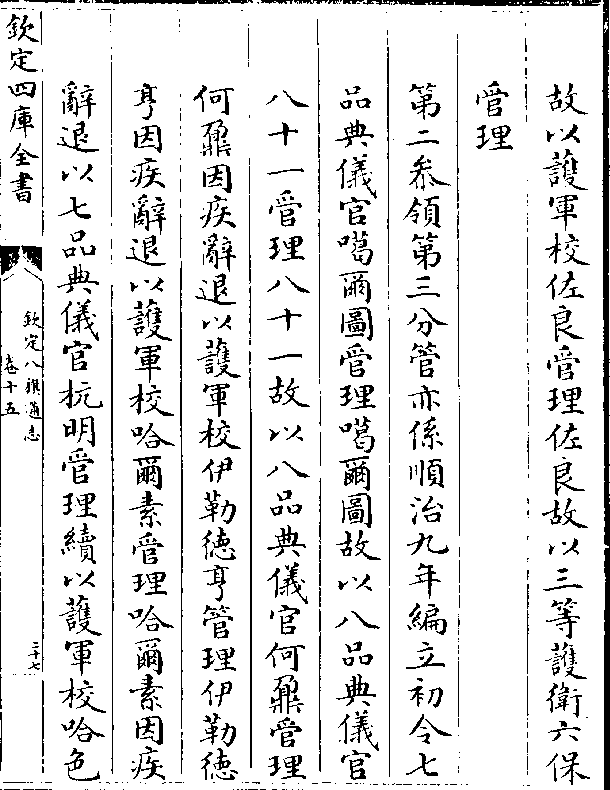 故以護軍校佐良管理佐良故以三等護衛六保
管理
第二叅領第三分管亦係順治九年編立初令七
品典儀官噶爾圖管理噶爾圖故以八品典儀官
八十一管理八十一故以八品典儀官何鼐管理
何鼐因疾辭退以護軍校伊勒徳亨管理伊勒徳
亨因疾辭退以護軍校哈爾素管理哈爾素因疾
辭退以七品典儀官杭明管理續以護軍校哈色
欽定四庫全書
欽定八旗通志
卷十五
二十七